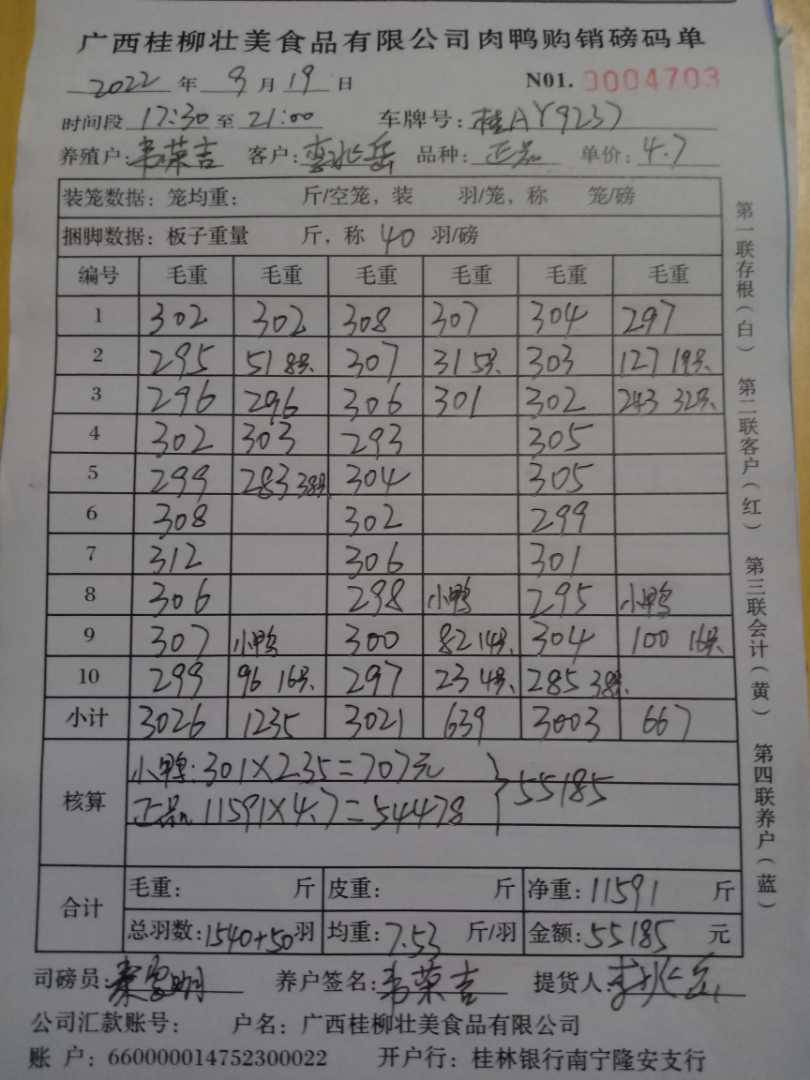 广西桂柳壮美食品有限公司肉鸭购销磅码单
2022 年 9 月 19 日 N01. 0004703
时间段 17:30 至 21:00 车牌号: 桂AY9237
养殖户: 韦荣吉 客户: 品种: 正品 单价: 4.7
装笼数据: 笼均重: 斤/空笼, 装 羽/笼, 称 笼/磅
捆脚数据: 板子重量 斤, 称 40 羽/磅
编号 毛重 毛重 毛重 毛重 毛重 毛重
1 302 302 308 307 304 297
2 295 51 8只 307 31 5只 303 127 19只
3 296 296 306 301 302 243 32只
4 302 303 293 305
5 299 283 38只 304 305
6 308 302 299
7 312 306 301
8 306 298 小鸭 295 小鸭
9 307 小鸭 300 82 14只 304 100 16只
10 299 96 16只 297 23 4只 285 38只
小计 3026 1235 3021 639 3003 667
核算 小鸭: 301×2.35=707元
正品 11591×4.7=54478 }55185
合计 毛重: 斤 皮重: 斤 净重: 11591 斤
总羽数: 1540+50 羽 均重: 7.53 斤/羽 金额: 55185 元
司磅员: 养户签名: 韦荣吉 提货人:
公司汇款账号: 户名: 广西桂柳壮美食品有限公司
账 户: 660000014752300022 开户行: 桂林银行南宁隆安支行
第一联存根(白) 第二联客户(红) 第三联会计(黄) 第四联养户(蓝)